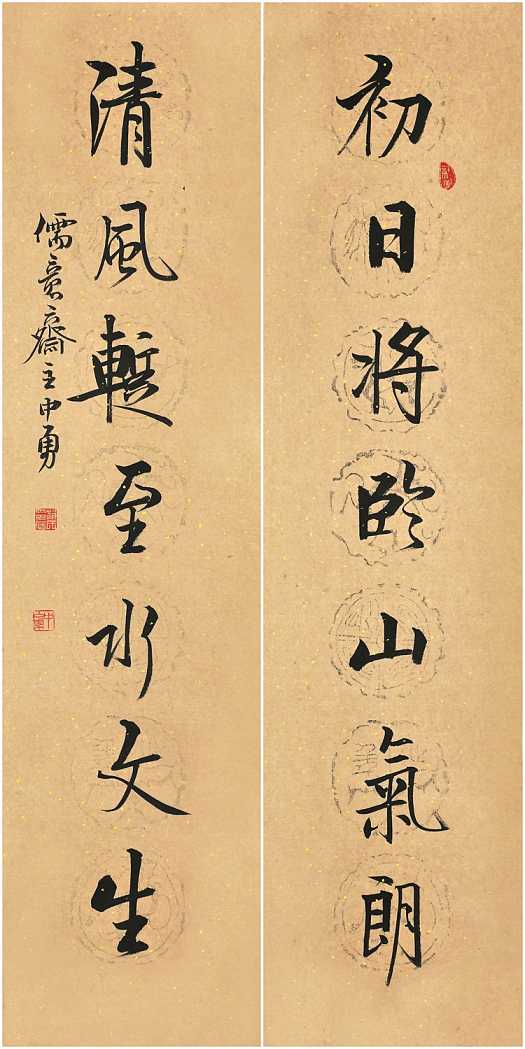 初日將臨山氣朗
清風暫至水文生
儒意齋主中勇